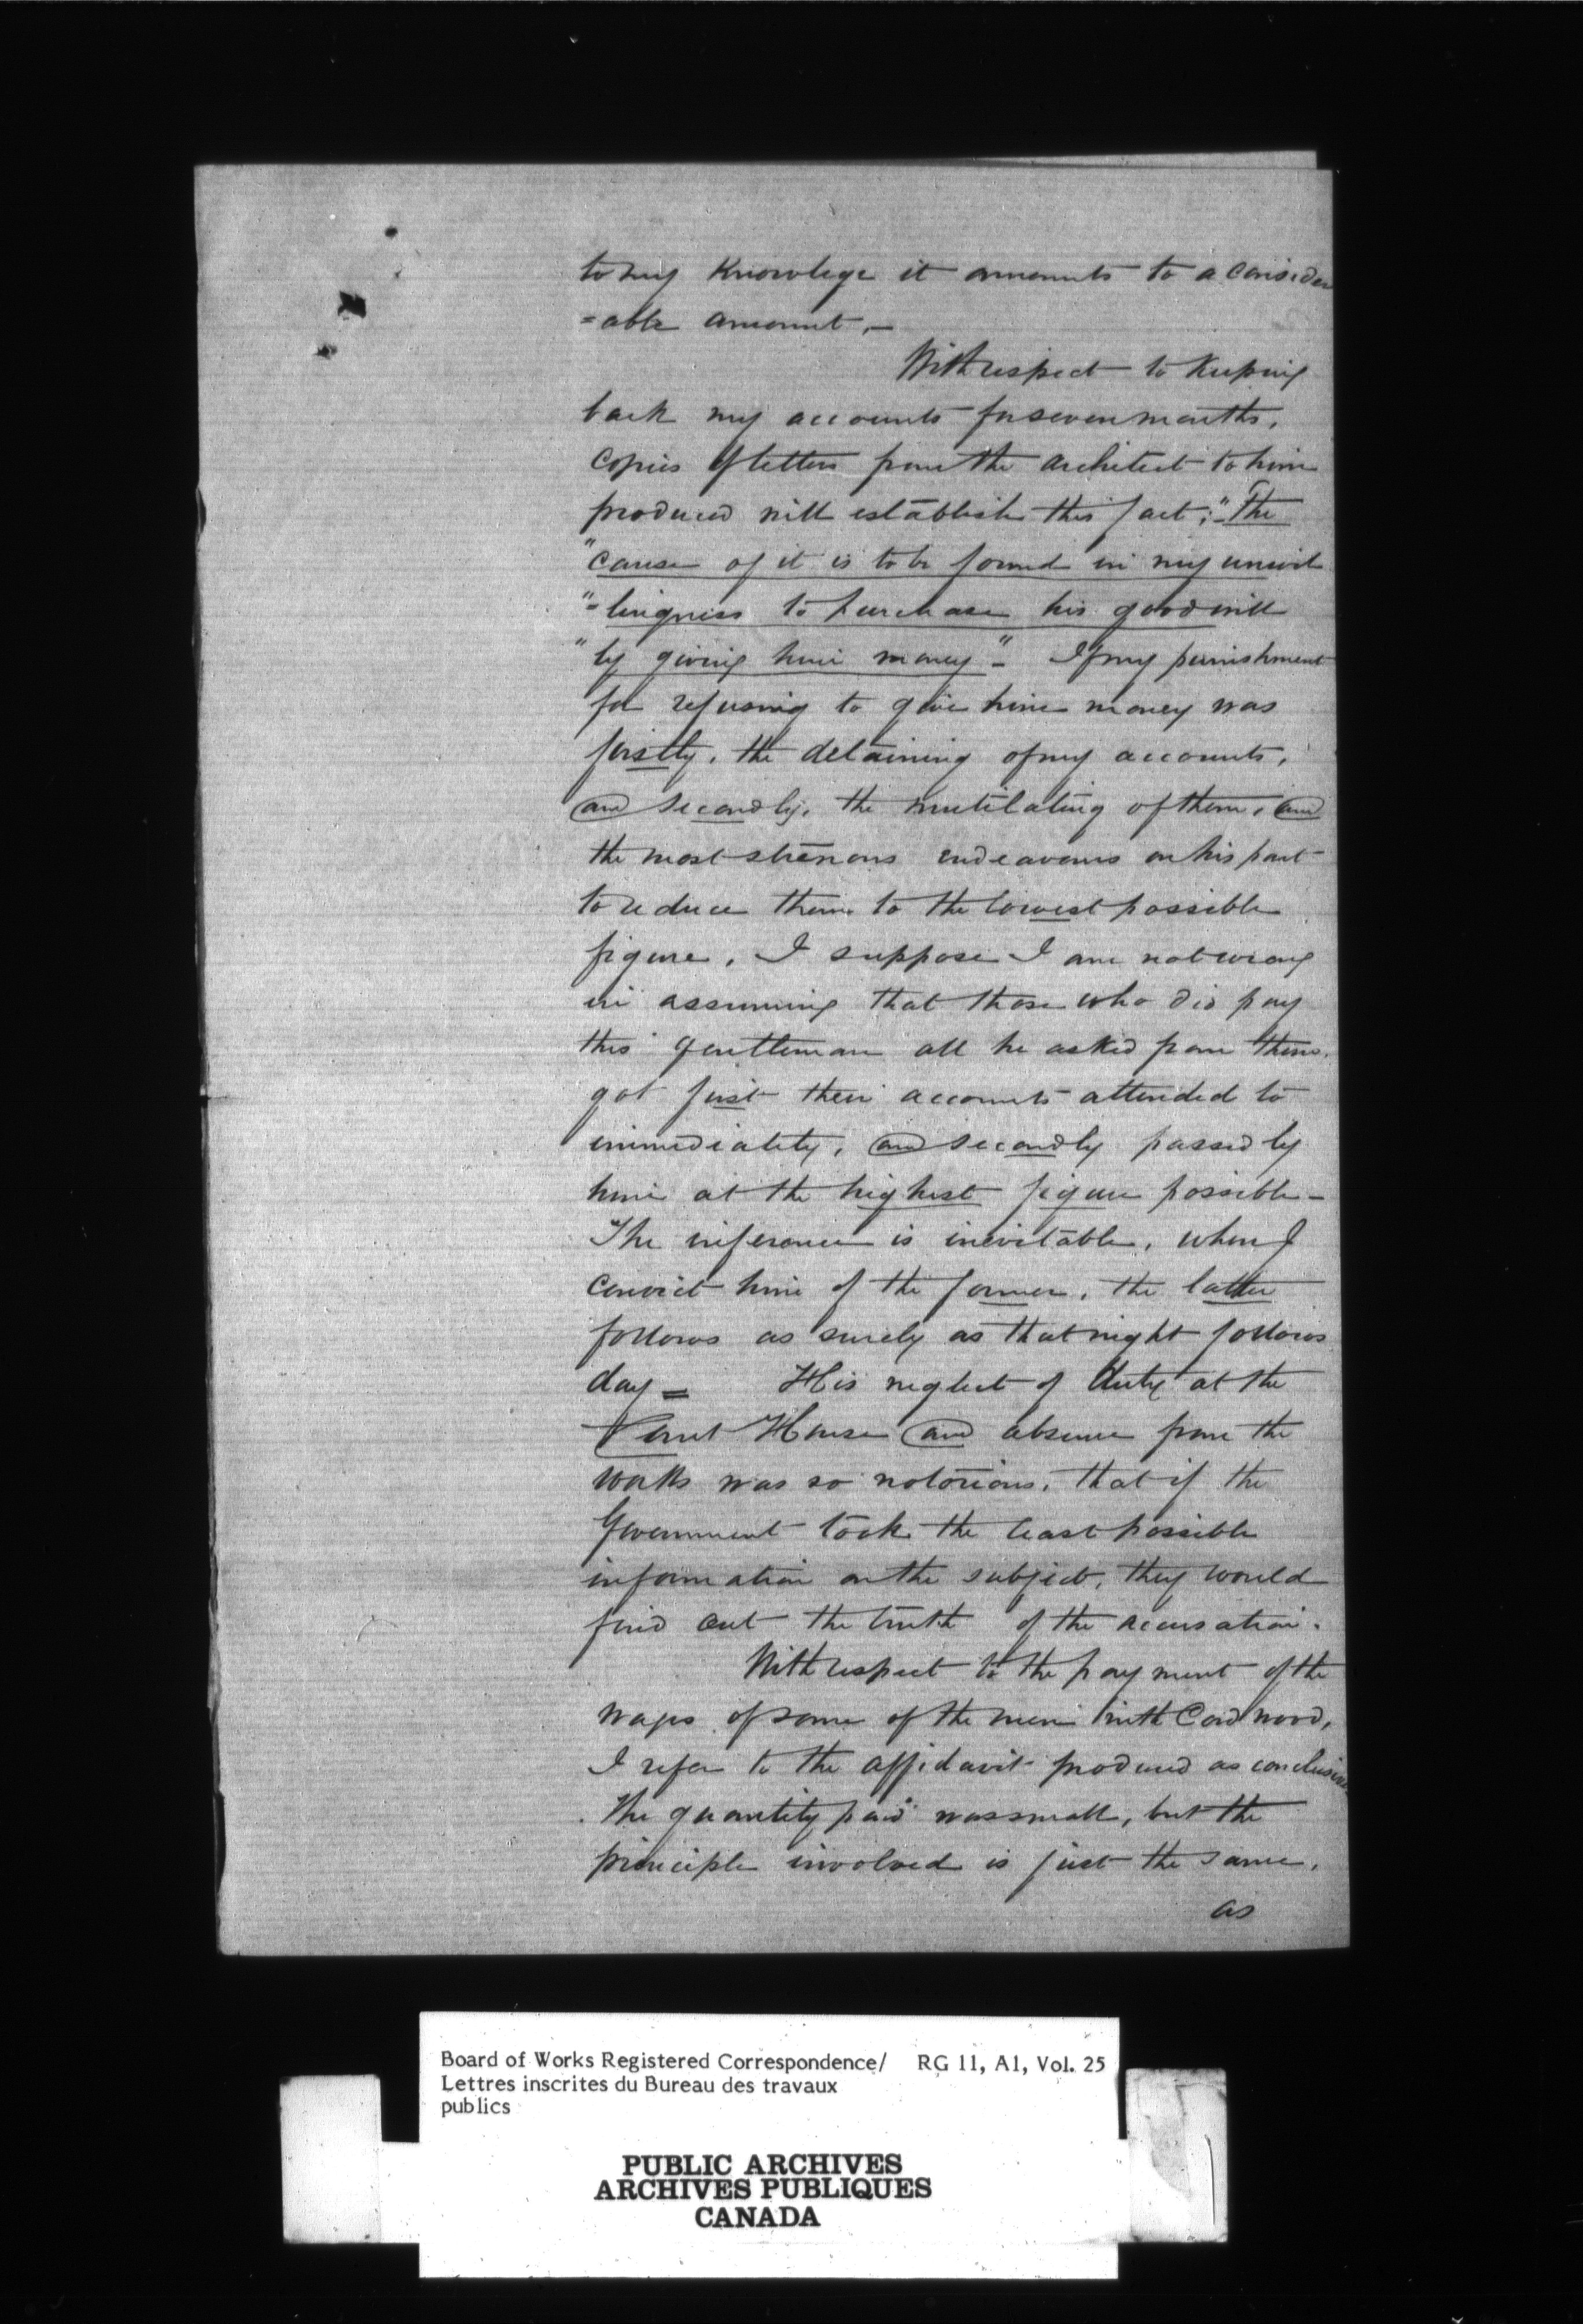 to my Knowlege it amounts to a consider
=able amount. —
With respect to Keeping
back my accounts for seven months,
copies of letters from the architect to him
produced will establish this fact; "The
"cause of it is to be found in my unwil
"=lingness to purchase his good will
"by giving him money" - If my punishment
for refusing to give him money was
firstly, the detaining of my accounts,
and secondly, the mutilating of them, and
the most strenous endeavours on his part
to reduce them to the lowest possible
figure, I suppose I am not wrong
in assuming that those who did pay
this gentleman all he asked from them.
got first their accounts attended to
immediately, and secondly passed by
him at the highest figure possible -
The inference is inevitable, when I
convict him of the former, the latter
follows as surely as that night follows
day = His neglect of duty at the
House and absence from the
works was so notorious, that if the
Government took the least possible
information on the subject, they would
find out the truth of the accusation.
With respect to the payment of the
wages of some of the men with Cord wood,
I refer to the affidavit produced as conclusive
The quantity paid was small, but the
principle involved is just the same,
as
Board of Works Registered Correspondence/ RG 11, A1, Vol. 25
Lettres inscrites du Bureau des travaux
publics
PUBLIC ARCHIVES
ARCHIVES PUBLIQUES
CANADA